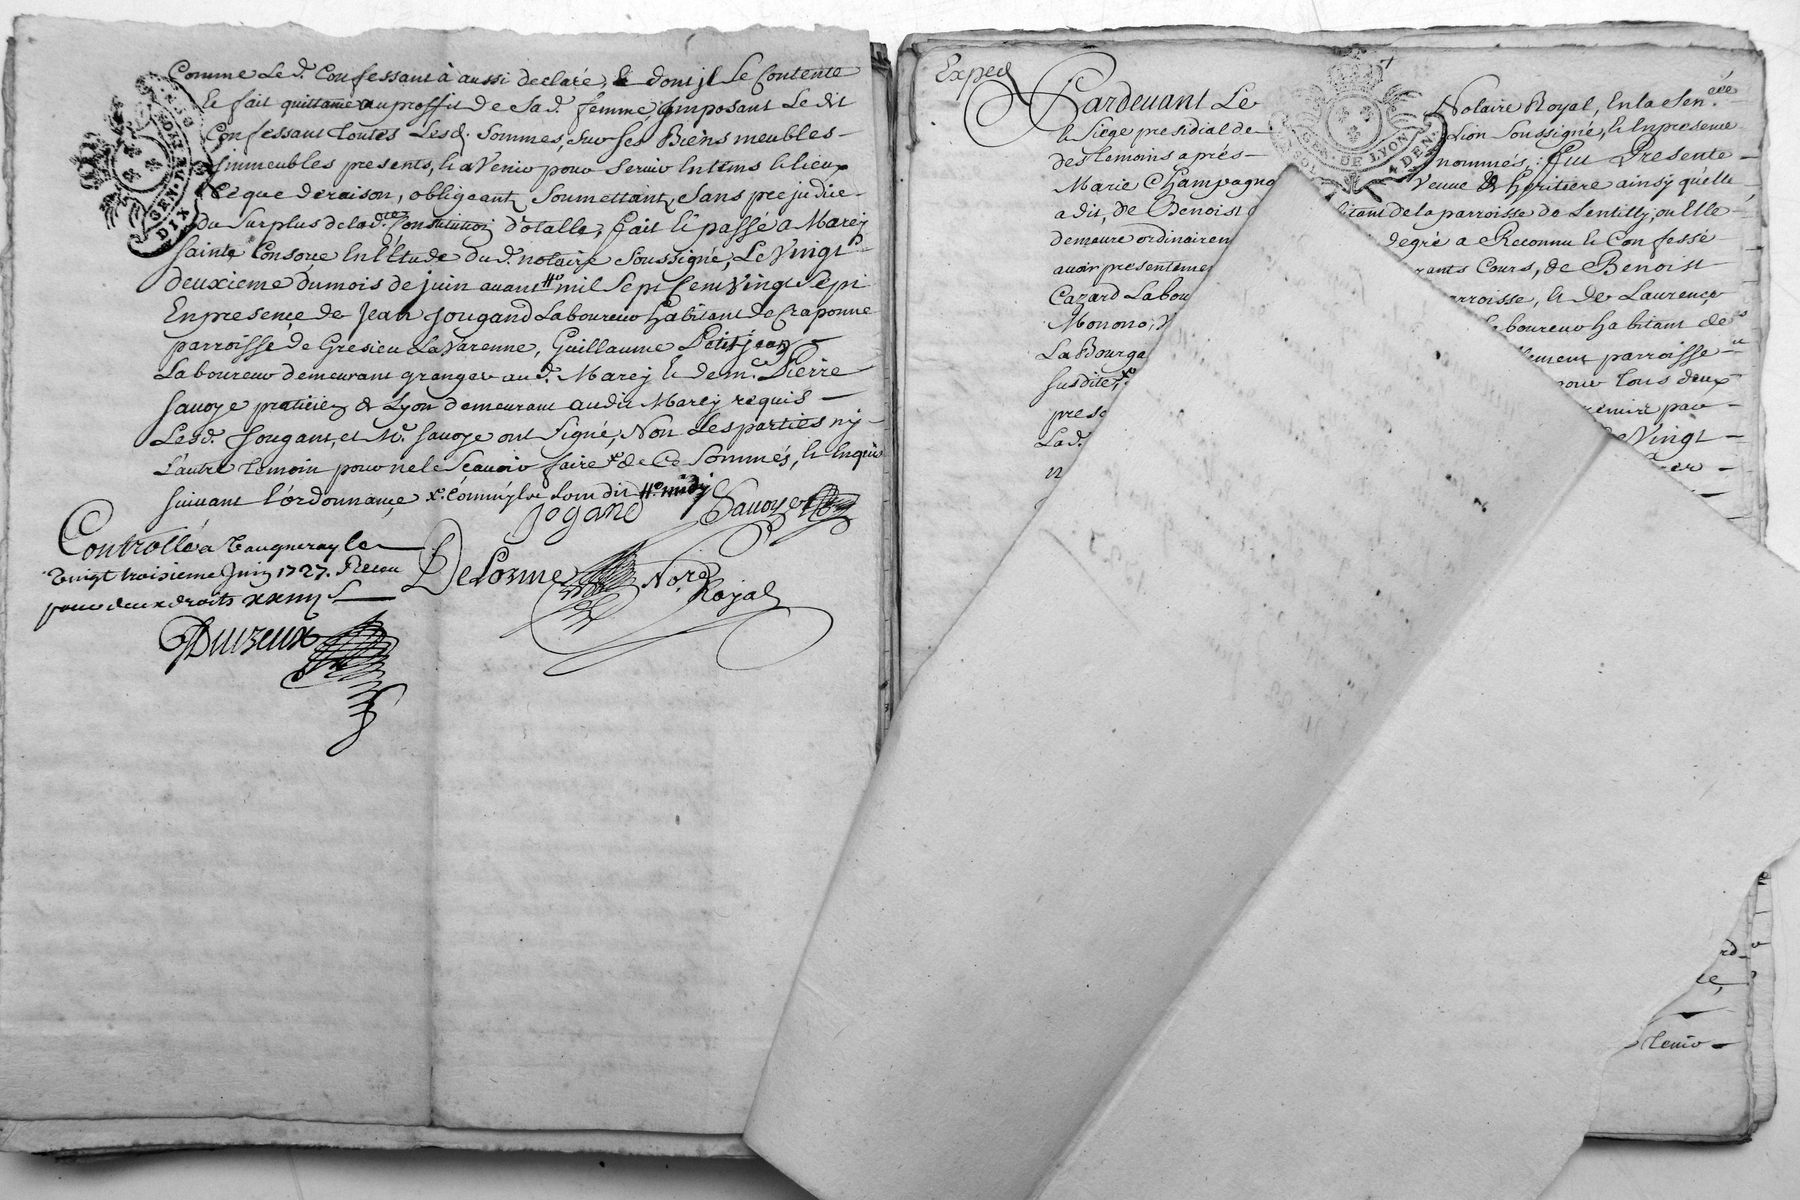 Comme Le d. Confessant à aussi declaré, & dont jl Se Contente
Et fait quittance au proffit de Sa d. femme, jmposant Le dit
Confessant toutes Lesd. Sommes, sur Ses Biens meubles
jmmeubles presents, & a Venir pour Servir En tems & lieux
Ce que de raison, obligeant, Soumettant, Sans prejudice
Du Surplus de la d. Constitution d'otalle, fait & passé a Marcy
Sainte Consorce En l'Etude du d. notaire Soussigné, Le Vingt
deuxieme du mois de juin avant mil Sept Cent Vingt Sept
En presence de Jean Jougand Laboureur habitant de Craponne
parroisse de Gresieu La Varenne, Guillaume Petitjean
Laboureur demeurant granger au d. Marcy & de me. Pierre
Savoye praticien de Lyon demeurant audit Marcy requis
Lesd. Jougant, et Me. Savoye ont Signé, Non Les parties ny
L'autre temoin pour ne le Scavoir faire de Ce Sommés, & Enquis
Suivant l'ordonnance
Jogand Savoye
Controllé a Vaugneray le
Vingt troisieme Juin 1727. Receu
pour deux droits
DeLorme Nore
Royal
Duizeux
GEN. DE LYON
DIX DEN.
Exped
Pardevant Le Notaire Royal, En la Sen.
& Siege presidial de Lion Soussigné, & En presence
des temoins aprés nommés, fut Presente
Marie Champagn Veuve & heritiere ainsy qu'elle
a dit, de Benoist bitant de la parroisse de Lentilly, ou Elle
demeure ordinairem degré a Reconnu & Confessé
avoir presenteme rants Cours, de Benoist
Cazard Labou rroisse, & de Laurence
boureur habitant de
La Bourge llement parroisse
Susdite pour tous deux
pres
La d. Vingt
GEN. DE LYON
DEN.